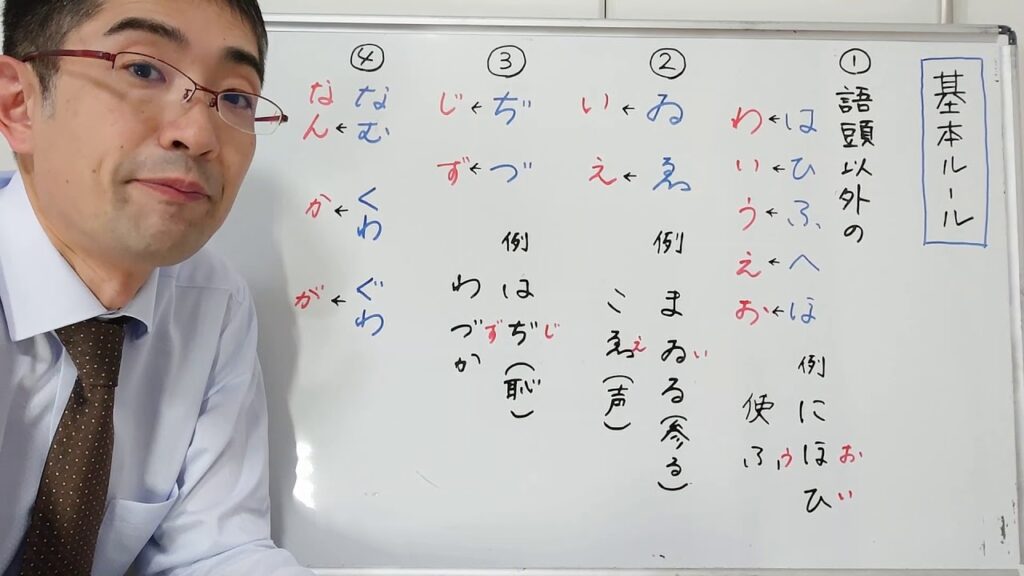 基本ルール
①
語頭以外の
は→わ
ひ→い
ふ→う
へ→え
ほ→お
例 にほひ
おい
使ふ
う
②
ゐ→い
ゑ→え
例 まゐる(参る)
い
こゑ(声)
え
③
ぢ→じ
づ→ず
例 はぢ(恥)
じ
わづか
ず
④
なむ→なん
くわ→か
ぐわ→が